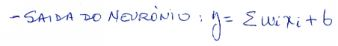 - SAIDA DO NEURÔNIO: y = Σwixi + b